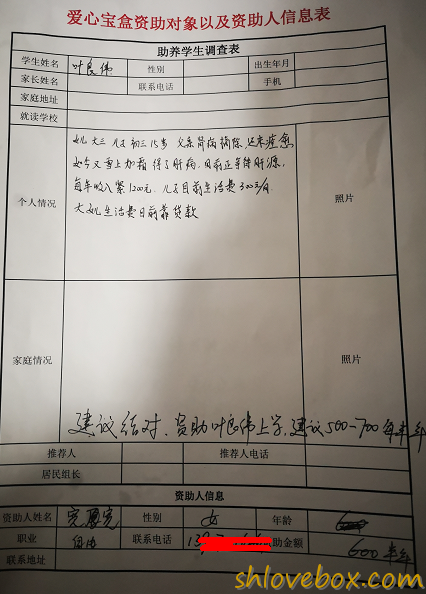 爱心宝盒资助对象以及资助人信息表
助养学生调查表
学生姓名 叶良伟 性别 出生年月
家长姓名 联系电话 手机
家庭地址
就读学校
女儿 大三 儿子 初三 15岁 父亲 肾病 摘除
如今又雪上加霜 得了肝病 目前正等待肝源
每年收入 1200元 儿子目前生活费 300元/月
个人情况 照片
大女儿生活费目前靠贷款
家庭情况 照片
建议结对、资助叶良伟上学,建议500-700每半年
推荐人 推荐人电话
居民组长
资助人信息
资助人姓名 性别 女 年龄
职业 自由 联系电话 助金额 600半年
联系地址
shlovebox.com